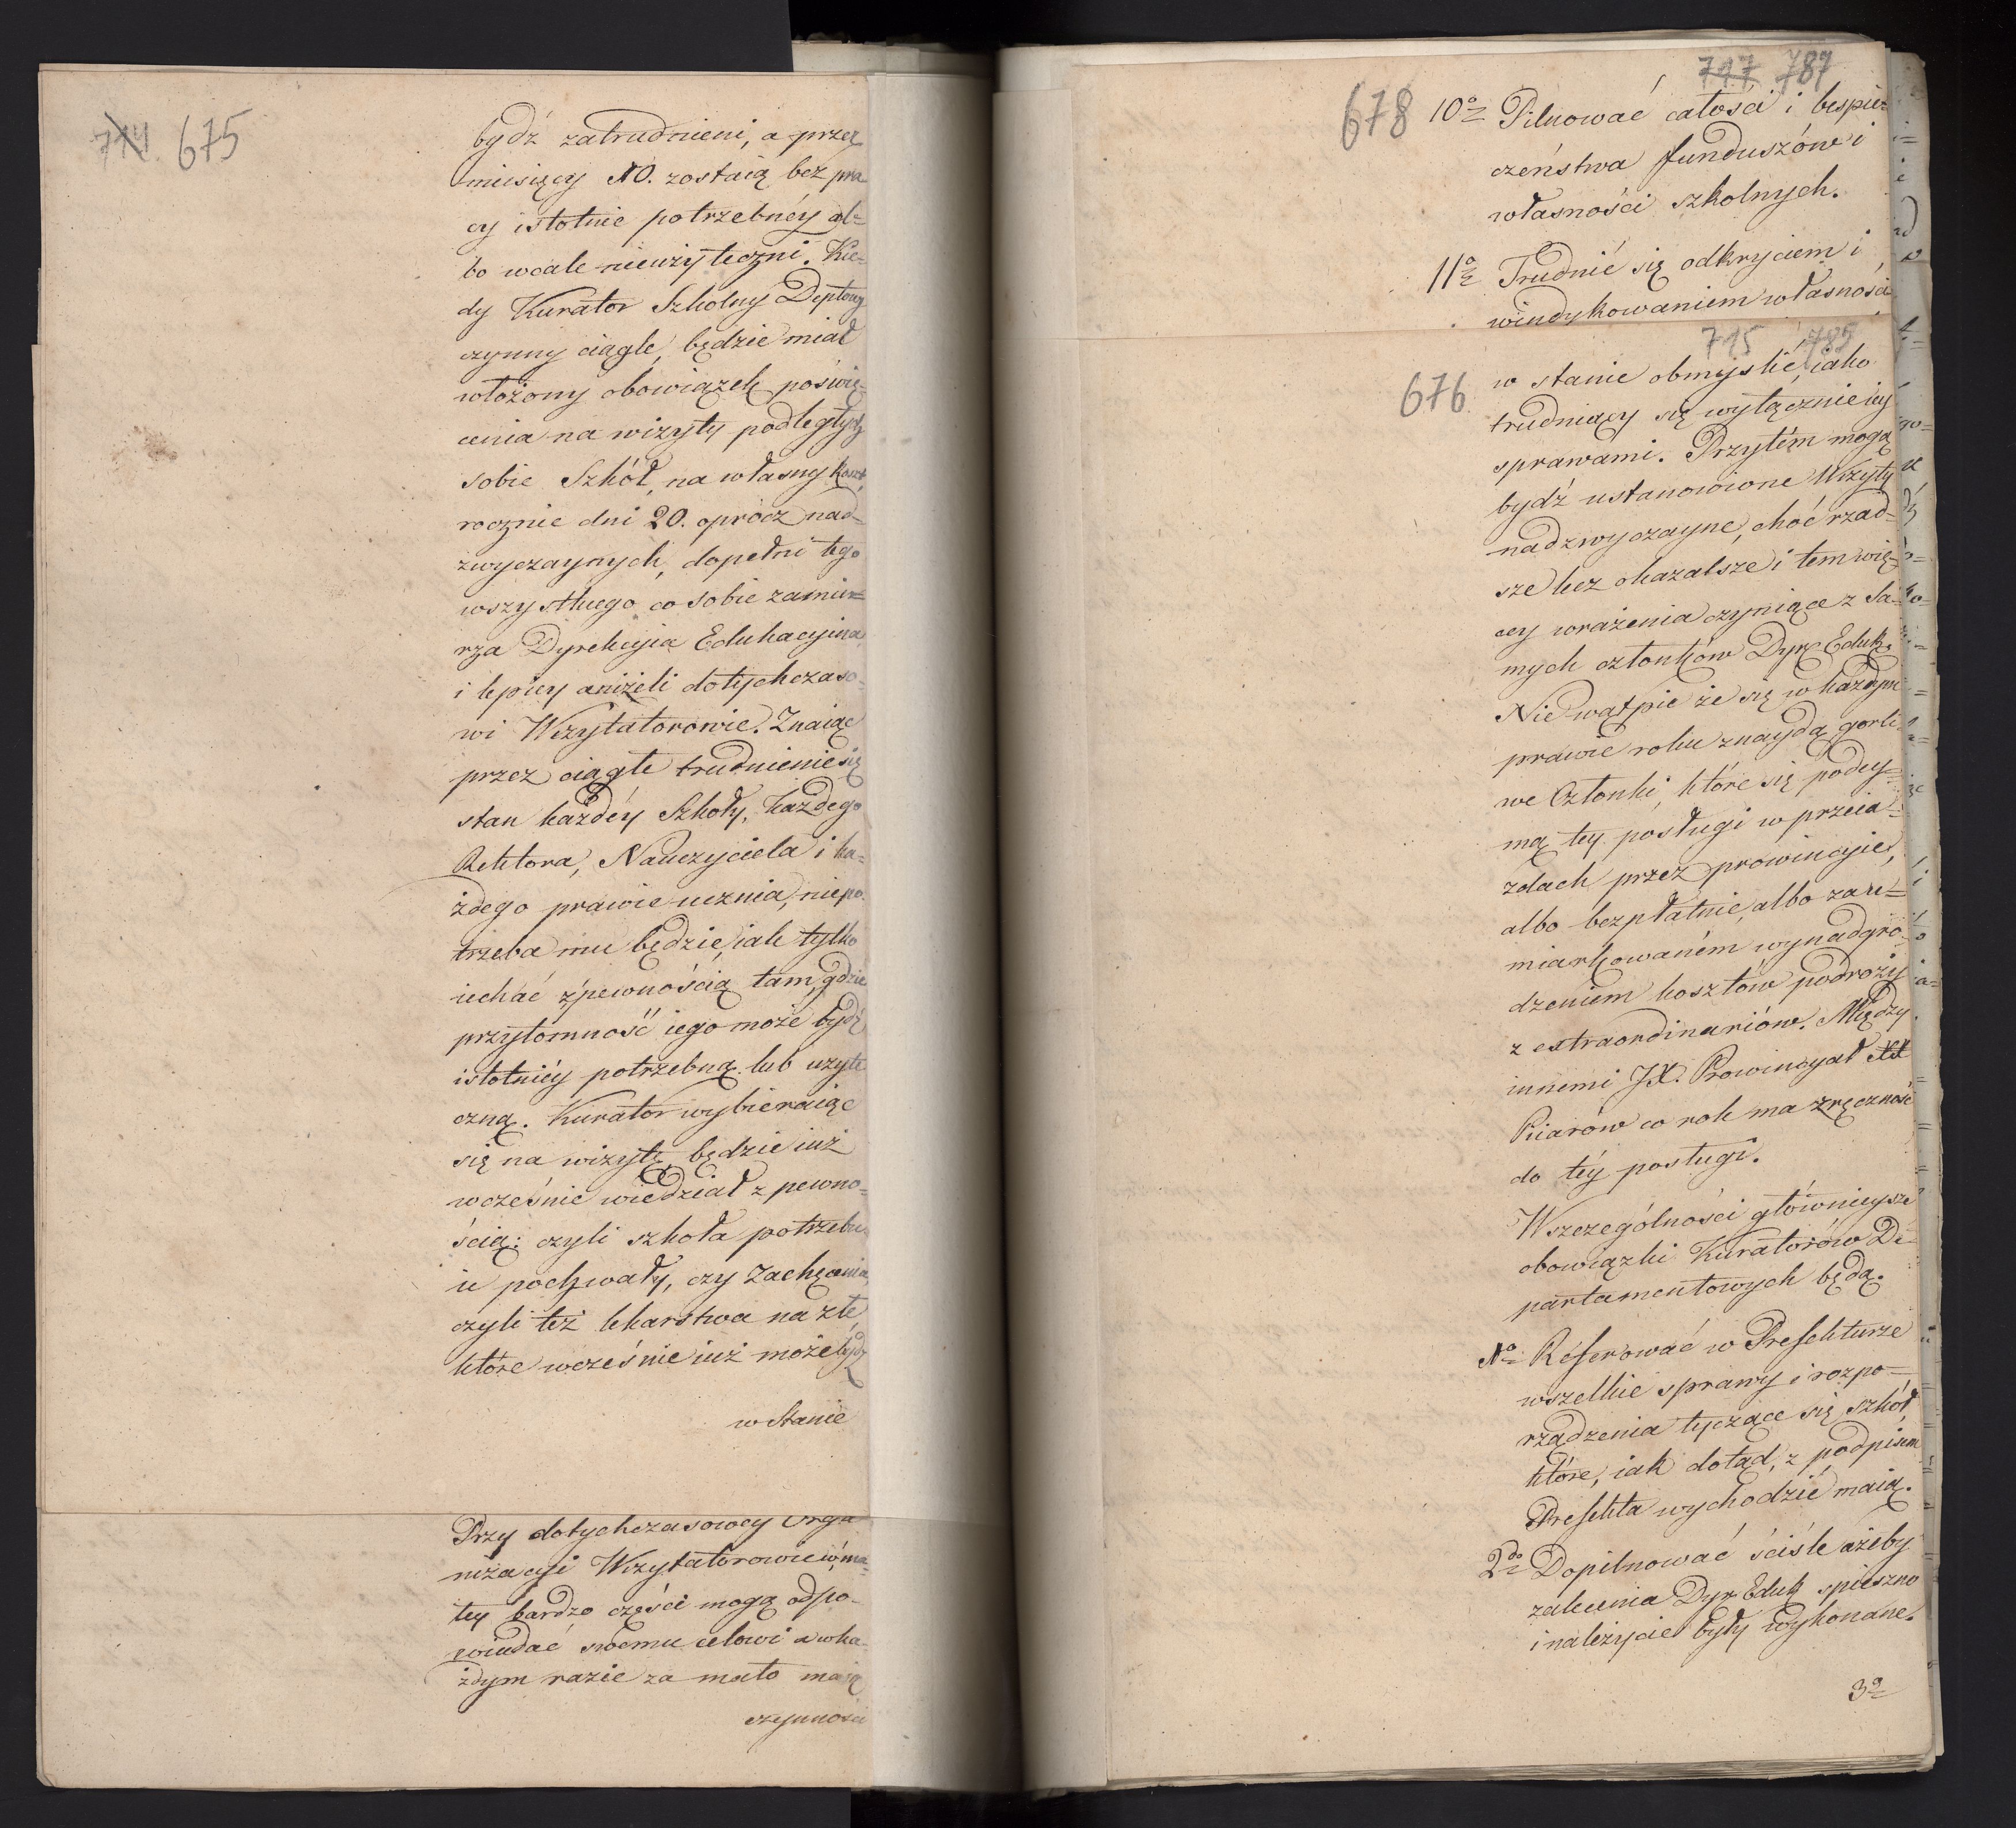 714. 675
bydź zatrudnieni, a przez
miesięcy 10. zostaią bez pra
cy istotnie potrzebnéy al=
bo wcale nieużyteczni. Kie=
dy Kurator Szkolny Deptowy
czynny ciągle, będzie miał
włożony obowiązek poświę=
cenia na wizyty podległych
sobie Szkół, na własny koszt,
rocznie dni 20. oprócz nad=
zwyczaynych, dopełni tego
wszystkiego co sobie zamie=
rza Dyrekcyia Edukacyina
i lepiey aniżeli dotychczaso=
wi Wizytatorowie. Znaiąc
przez ciągłe trudnienie się
stan każdéy Szkoły, każdego
Rektora, Nauczyciela i ka=
żdego prawie ucznia, niepo=
trzeba mu będzie, iak tylko
iechać z pewnością tam, gdzie
przytomność iego może bydź
istotniéy potrzebną lub użyte
czną. Kurator wybieraiąc
się na wizytę będzie iuż
wcześnie wiedział z pewno=
ścią: czyli szkoła potrzebu=
ie pochwały, czy zachęcenia,
czyli też lekarstwa na złe,
które wcześnie iuż może bydź
w stanie
Przy dotychczasowey Orga
nizacyi Wizytatorowie w ma=
łey bardzo części mogą odpo=
wiadać swemu celowi a w ka=
żdym razie za mało maią
czynności
717 787
678
10o Pilnować całości i bespie=
czeństwa funduszów i
własności szkolnych.
11o Trudnić się odkryciem i
windykowaniem własności
715 785
676.
w stanie obmyślić, iako
trudniący się wyłącznie iey
sprawami. Przytém mogą
bydź ustanowione Wizyty
nadzwyczayne, choć rzad=
sze lecz okazalsze i tem wię=
cey wrażenia czyniące z Sa=
mych członków Dyr. Eduk.
Nie wątpię że się w każdym
prawie roku znaydą gorli=
we Członki, które się podey=
mą tey posługi w przeia=
zdach przez prowincyie,
albo bezpłatnie, albo za re=
miarkowaném wynadgro=
dzeniem kosztów podróży
z extraordinariów. Między
innemi JX. Prowincyał XX
Piiarów co rok ma zręczność
do téy posługi.
W szczególności głównieysze
obowiązki Kuratorów De=
partamentowych będą.
1o Referować w Prefekturze
wszelkie sprawy i rozpo=
rządzenia tyczące się szkół
które, iak dotąd, z podpisem
Prefekta wychodzić maią.
2do Dopilnować ściśle ażeby
zalecenia Dyr. Eduk. spieszno
i należycie były wykonane.
3o